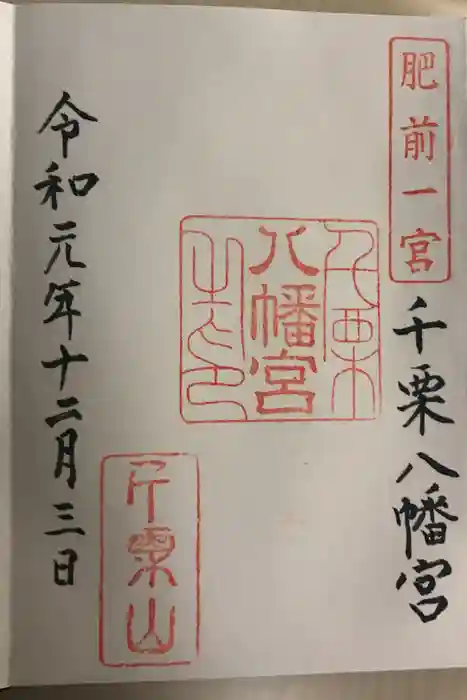 肥前一宮
千栗八幡宮
千栗
八幡宮
之印
千栗山
令和元年十二月三日